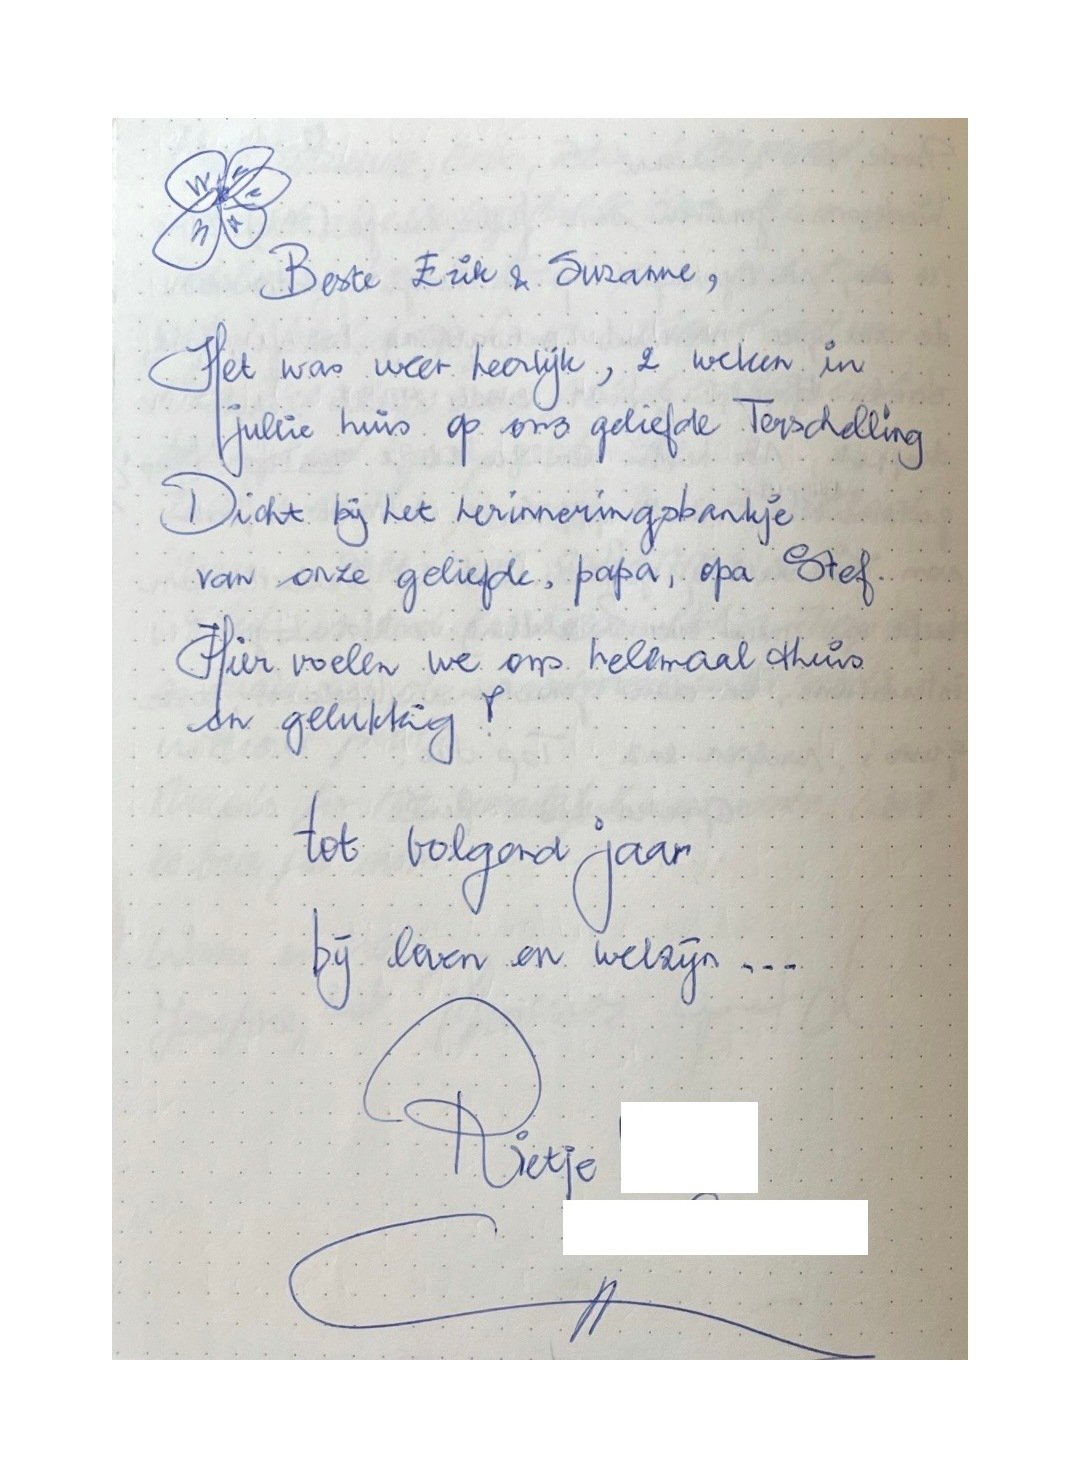 Beste Erik & Suzanne,
Het was weer heerlijk, 2 weken in
jullie huis op ons geliefde Terschelling
Dicht bij het herinneringsbankje
van onze geliefde, papa, opa Stef.
Hier voelen we ons helemaal thuis
en gelukkig!
tot volgend jaar
bij leven en welzijn ...
Rietje